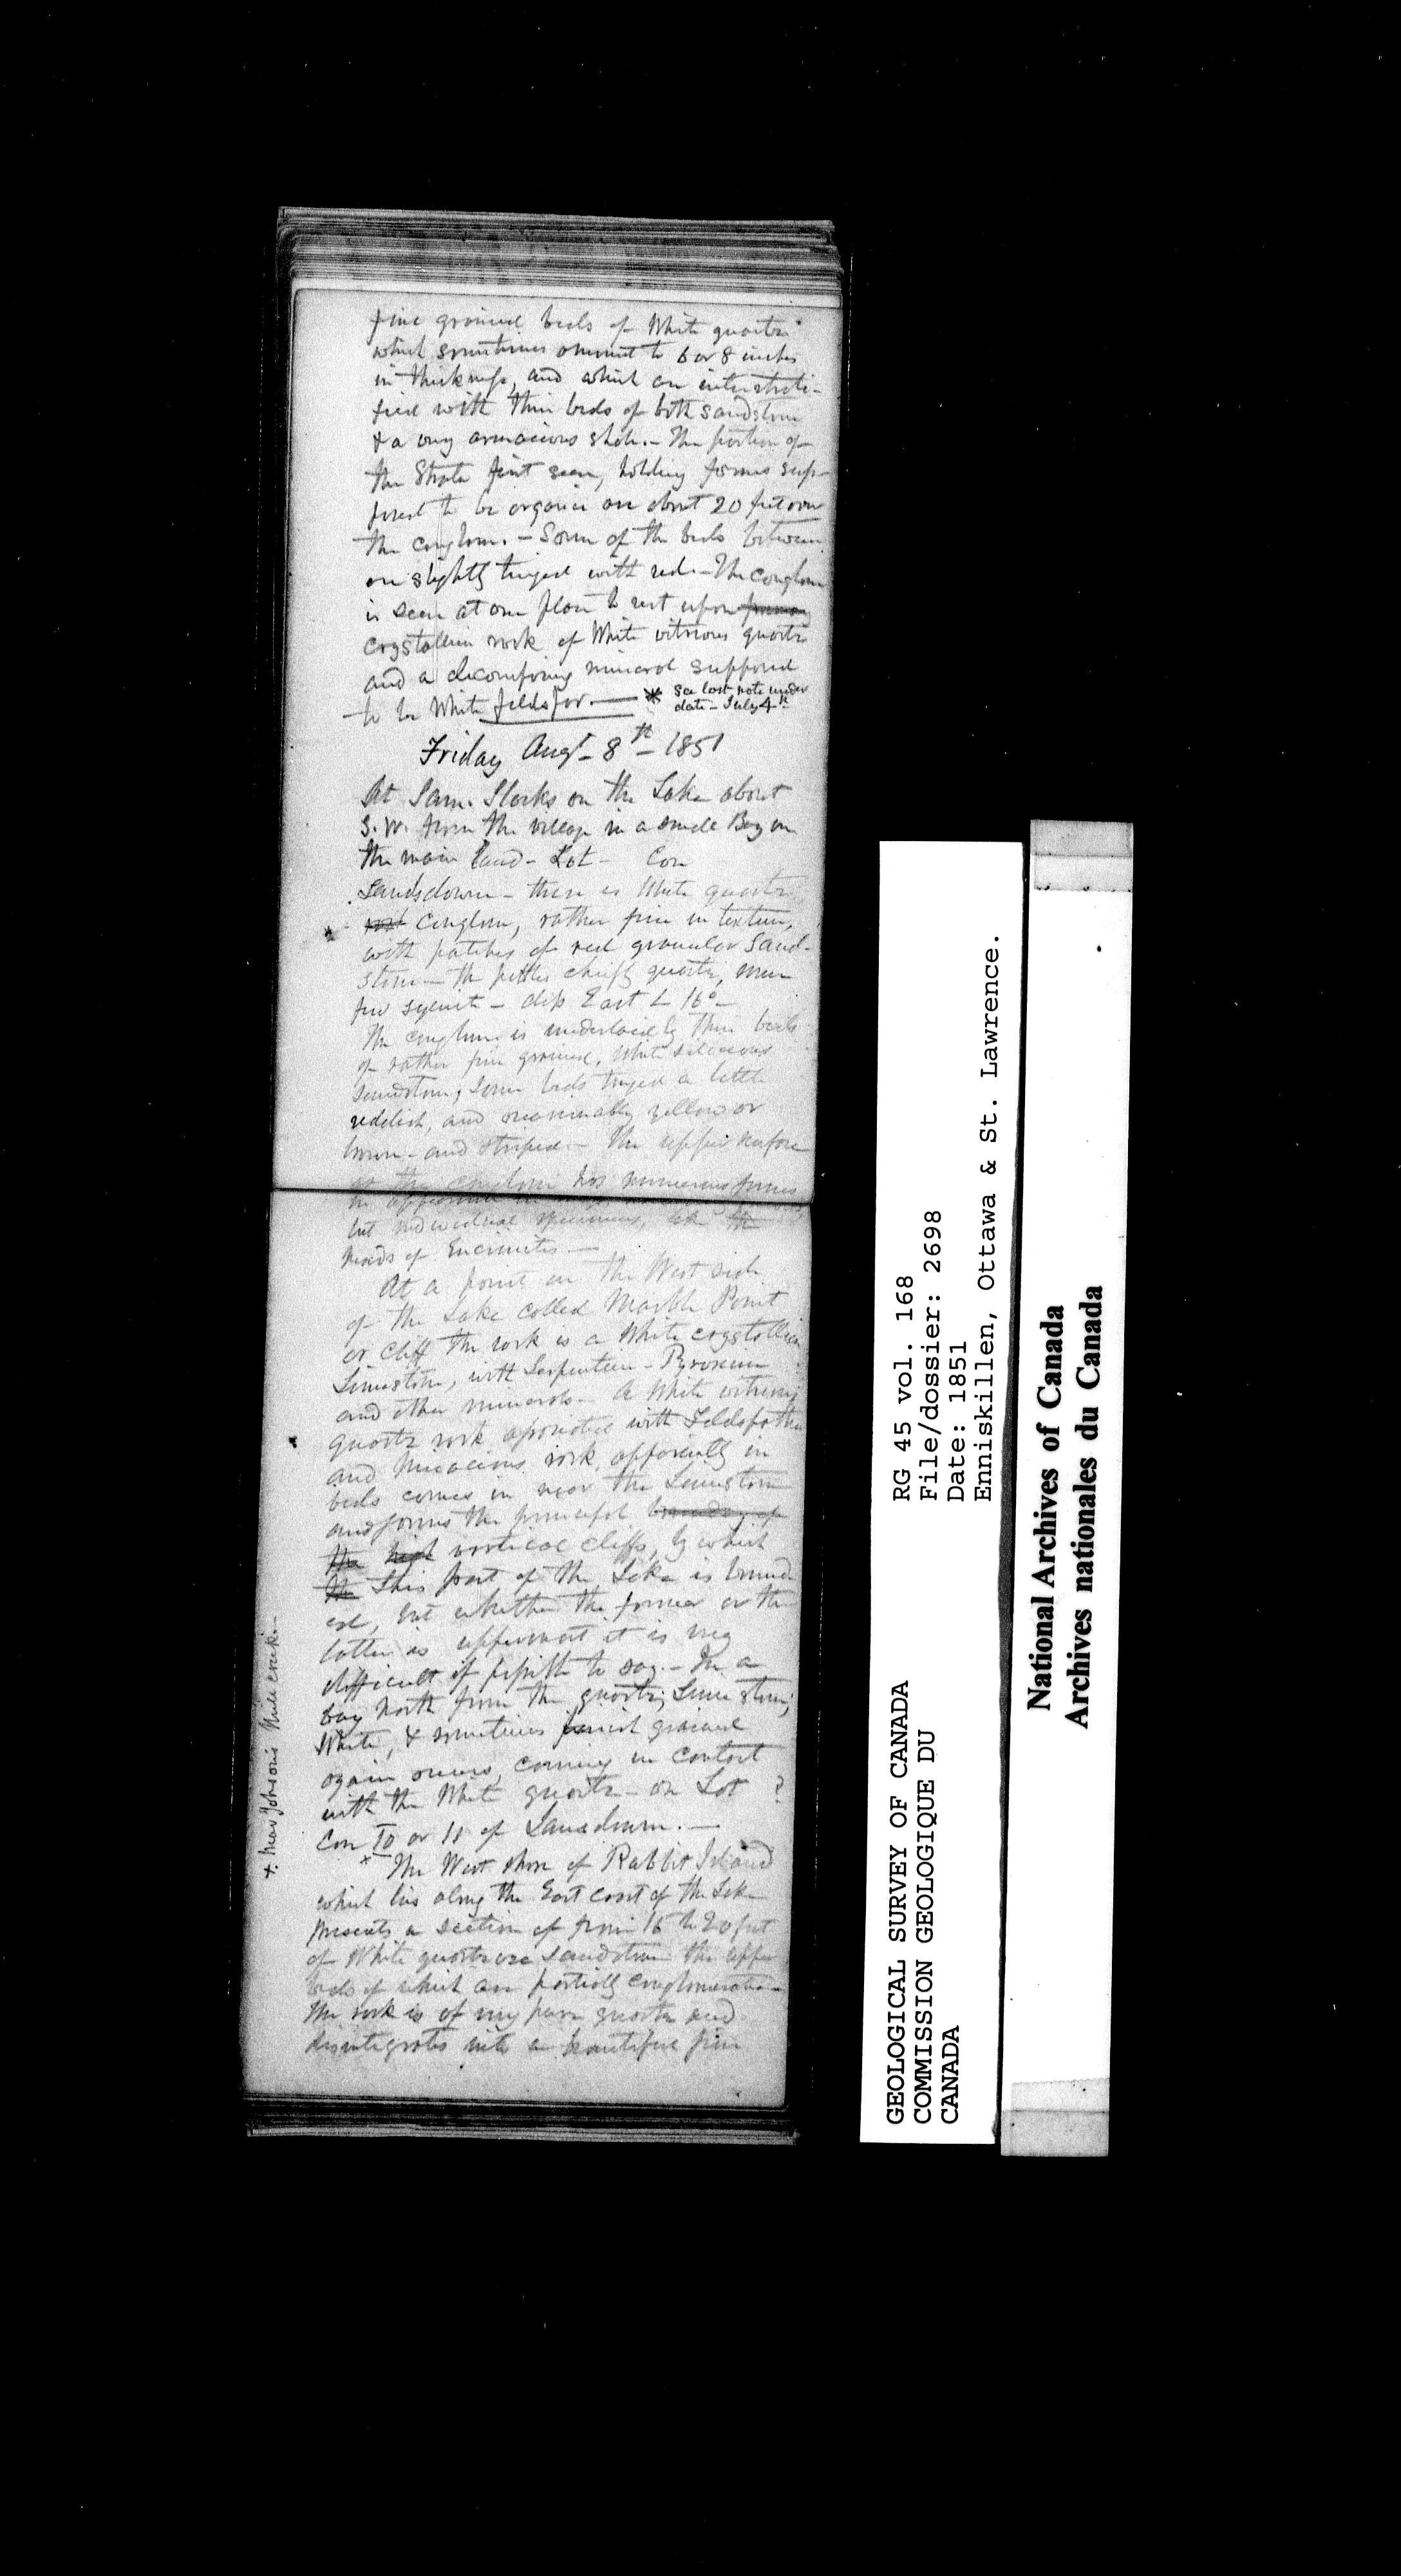 fine grained beds of White quartz
which sometimes amount to 6 or 8 inches
in thickness, and which are interstrati-
fied with thin beds of both sandstone
& a very arenacious shale. - The portion of
the Strata first seen, holding forms sup-
posed to be organic are about 20 feet over
the conglom. - Some of the beds between
are slightly tinged with red. - The conglom
is seen at one place to rest upon primary
crystalline rock of White vitrious quartz
and a decomposing mineral supposed
to be White feldspar. — * See last note under
date - July 4th
Friday Augt - 8th - 1851
At Sam. Slacks on the Lake about
S.W. from the village in a small Bay on
the main land - Lot - Con
Landsdown - there is White quartz
conglom, rather fine in texture,
with patches of red granular Sand-
stone - the pebbles chiefly quartz,
few syenite - dip East L 16° -
The conglom is underlaid by thin beds
of rather fine grained, White silicious
Sandstone, some beds tinged a little
reddish, and occasionally yellow or
brown - and striped - The upper surface
of the conglom has numerous forms
but individual specimens, like the
heads of Encrinites —
At a point on the West side
of the Lake called Marble Point
or Cliff the rock is a White crystalline
Limestone, with Serpentine - Pyroxene
and other minerals - A White vitrious
quartz rock associated with Feldspathic
and Micacious rock, apparently in
beds comes in near the Limestone
and forms the principal boundary of
the high vertical cliffs, by which
the this part of the Lake is bound-
ed, but whether the former or the
latter is uppermost it is very
difficult if possible to say. - In a
bay North from the quartz, Limestone,
White, & sometimes grained
again occurs, coming in contact
with the White quartz - on Lot ?
Con 10 or 11 of Lansdown. —
x The West shore of Rabbit Island
which lies along the East coast of the Lake
presents a section of from 15 to 20 feet
of White quartzose sandstone the upper
beds of which are partially conglomerate -
The rock is of very pure quartz and
disintegrates into a beautiful fine
x. Near Johnson's Mill creek -
GEOLOGICAL SURVEY OF CANADA
COMMISSION GEOLOGIQUE DU
CANADA
RG 45 vol. 168
File/dossier: 2698
Date: 1851
Enniskillen, Ottawa & St. Lawrence.
National Archives of Canada
Archives nationales du Canada